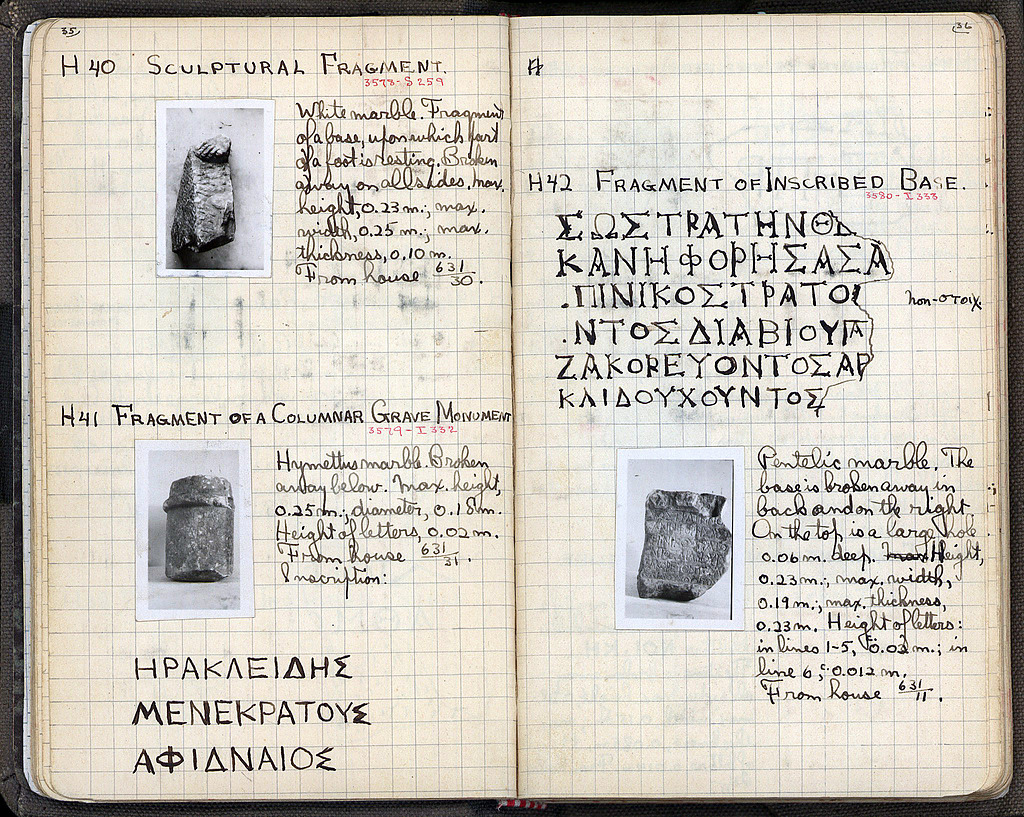 35
H 40 SCULPTURAL FRAGMENT.
3578-S 259
White marble. Fragment
of a base, upon which part
of a foot is resting. Broken
away on all sides. Max.
height, 0.23 m.; max.
width, 0.25 m.; max.
thickness, 0.10 m.
From house 631/30.
H41 FRAGMENT OF A COLUMNAR GRAVE MONUMENT
3579-I 332
Hymettus marble. Broken
away below. Max. height,
0.25 m.; diameter, 0.18 m.
Height of letters, 0.02 m.
From house 631/31.
Inscription:
ΗΡΑΚΛΕΙΔΗΣ
ΜΕΝΕΚΡΑΤΟΥΣ
ΑΦΙΔΝΑΙΟΣ
36
H42 FRAGMENT OF INSCRIBED BASE.
3580-I 333
ΣΩΣΤΡΑΤΗΝΘΔ
ΚΑΝΗΦΟΡΗΣΑΣΑ
.ΠΙΝΙΚΟΣΤΡΑΤΟΥ
non-στοιχ.
.ΝΤΟΣΔΙΑΒΙΟΥΓΑ
ΖΑΚΟΡΕΥΟΝΤΟΣΑΡ
ΚΛΙΔΟΥΧΟΥΝΤΟΣ
Pentelic marble. The
base is broken away in
back and on the right.
On the top is a large hole
0.06 m. deep. Height,
0.23 m.; max. width,
0.19 m.; max. thickness,
0.23 m. Height of letters:
in lines 1-5, 0.02 m.; in
line 6, 0.012 m.
From house 631/11.